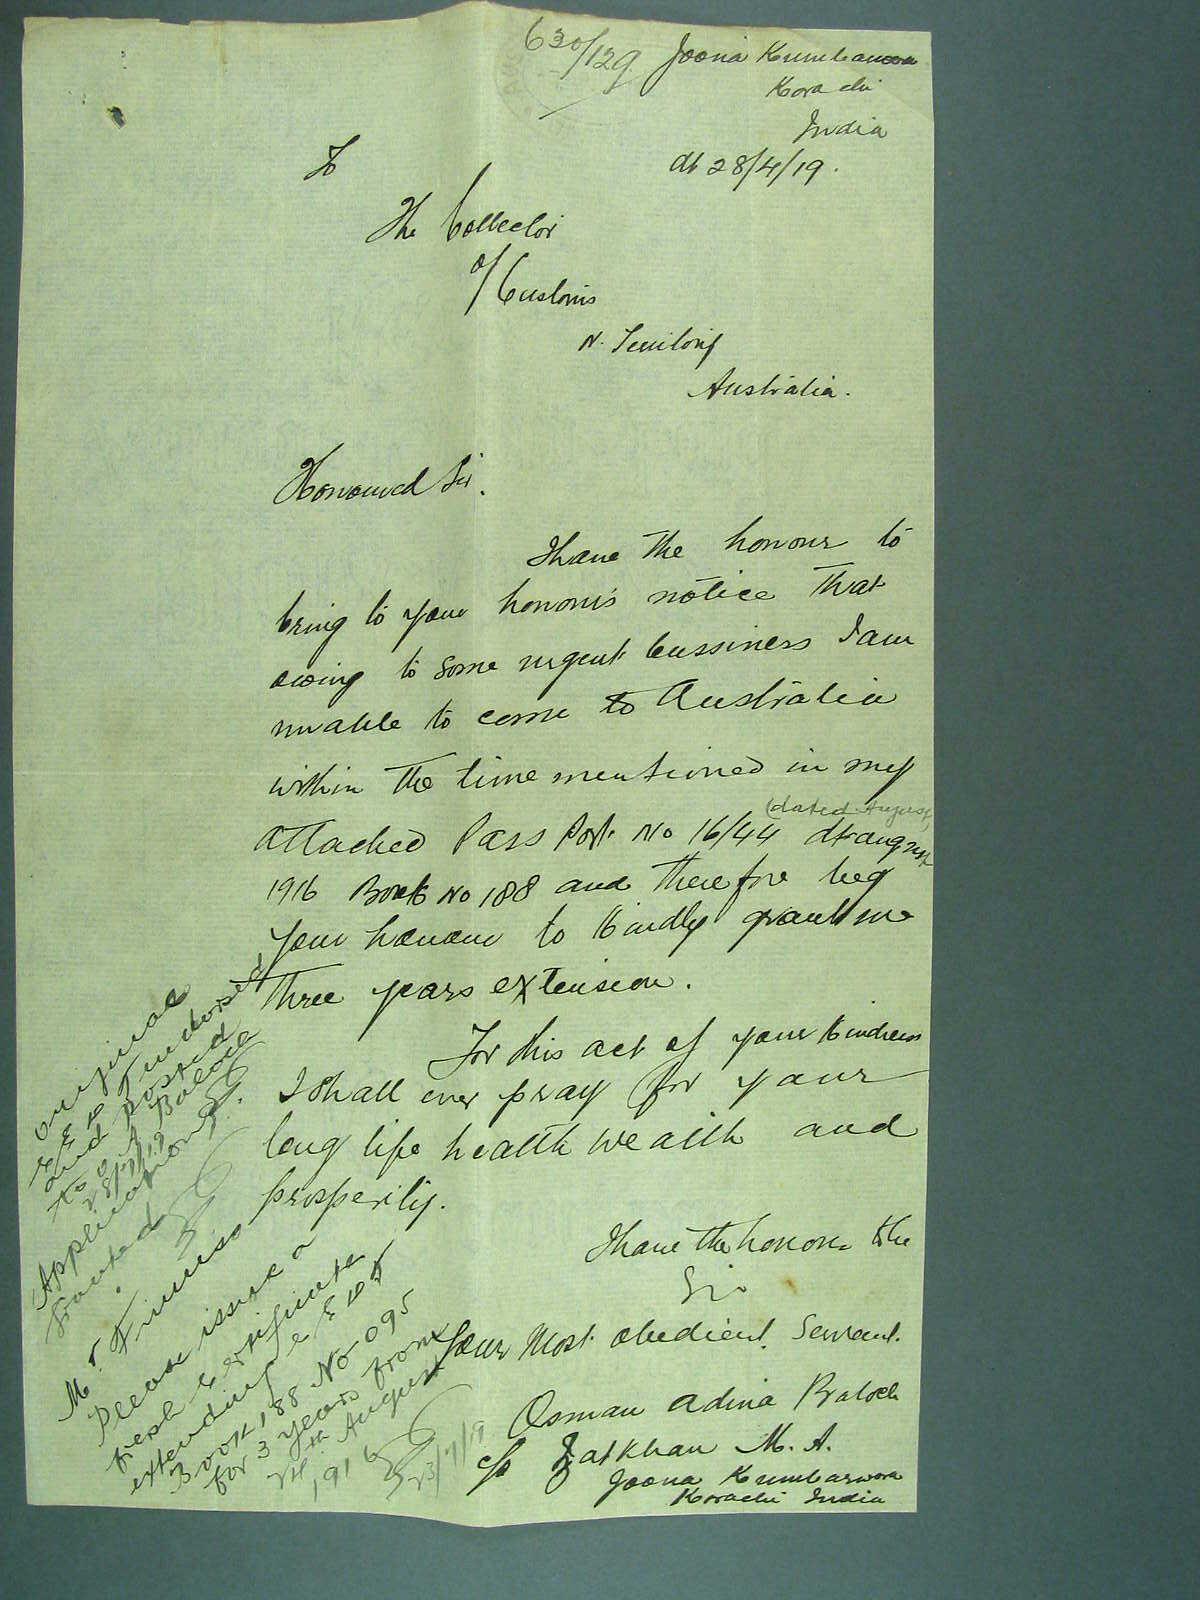 630/129
Joona Kumbarwara
Karachi
India
dt 28/4/19.
To
The Collector
of Customs
N. Territory
Australia.
Honoured Sir.
I have the honour to
bring to your honour's notice that
owing to some urgent bussiness I am
unable to come to Australia
within the time mentioned in my
(dated August,
attached Pass Port No 16/44 dt august
1916 Book No 188 and therefore beg
your honour to kindly grant me
three years extension.
For this act of your kindness
I shall ever pray for your
long life health wealth and
prosperity.
I have the honour to be
Sir
Your Most obedient Servant.
Osman Adina Baloch
c/o Jatkhan M. A.
Joona Kumbarwara
Karachi India
Original
C E D T endorsed
and posted
to O. A Baloch
28/7/19
Application
Granted.
Mr Finniss
Please issue a
fresh Certificate
extending C E D T
Book 188 No 095
for 3 years from
24th August
1916
23/7/19